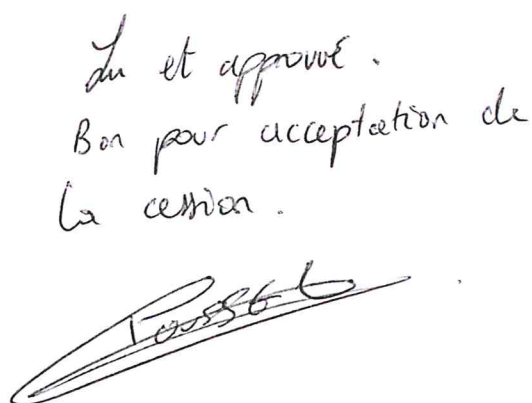 Lu et approuvé.
Bon pour acceptation de
la cession.
Pousset